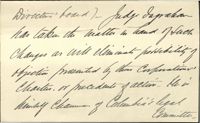 Directors board). Judge Ingraham
has taken the matter in hand of such
changes as will eliminate possibility of
objection presented by these Corporations
Charter, or precedent of action. He is
himself Chairman of Columbia's legal
Committee